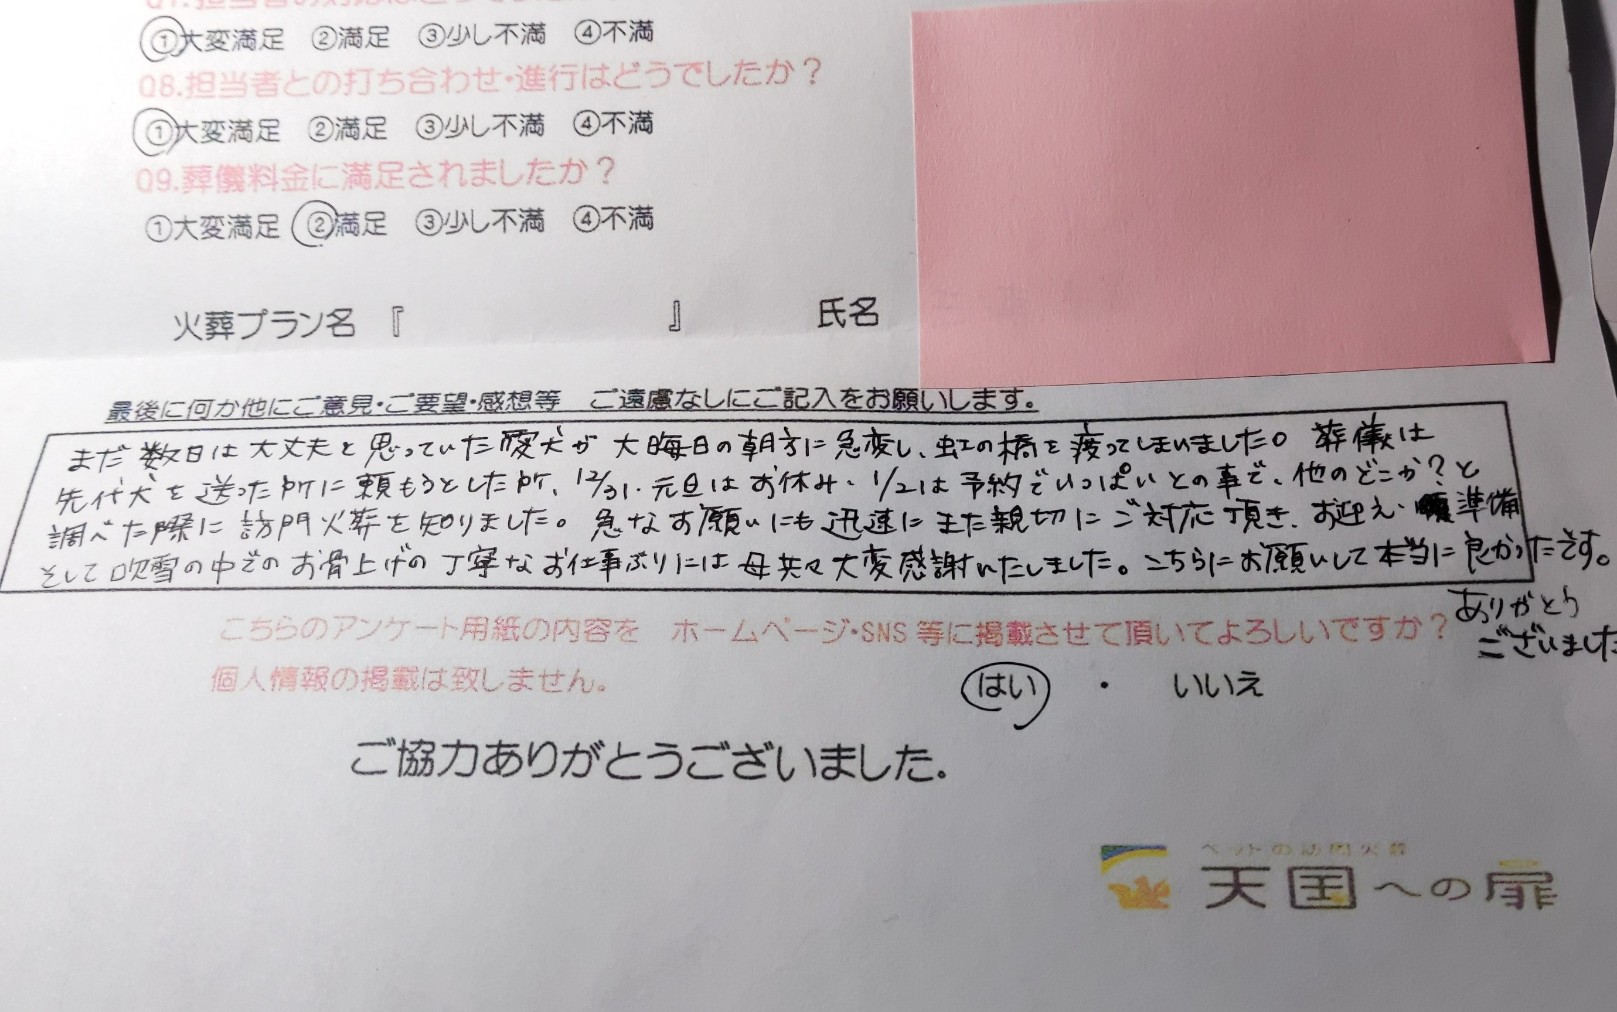 Q7.担当者の対応はどうでしたか
①大変満足 ②満足 ③少し不満 ④不満
Q8.担当者との打ち合わせ・進行はどうでしたか？
①大変満足 ②満足 ③少し不満 ④不満
Q9.葬儀料金に満足されましたか？
①大変満足 ②満足 ③少し不満 ④不満
火葬プラン名 『 』 氏名
最後に何か他にご意見・ご要望・感想等 ご遠慮なしにご記入をお願いします。
まだ数日は大丈夫と思っていた愛犬が大晦日の朝方に急変し、虹の橋を渡ってしまいました。葬儀は
先代犬を送った所に頼もうとした所、12/31・元旦はお休み・1/2は予約でいっぱいとの事で、他のどこか？と
調べた際に訪問火葬を知りました。急なお願いにも迅速にまた親切にご対応頂き、お迎え・準備
そして吹雪の中でのお骨上げの丁寧なお仕事ぶりには母共々大変感謝いたしました。こちらにお願いして本当に良かったです。
ありがとう
ございました
こちらのアンケート用紙の内容を ホームページ・SNS等に掲載させて頂いてよろしいですか？
個人情報の掲載は致しません。
はい ・ いいえ
ご協力ありがとうございました。
ペットの訪問火葬
天国への扉